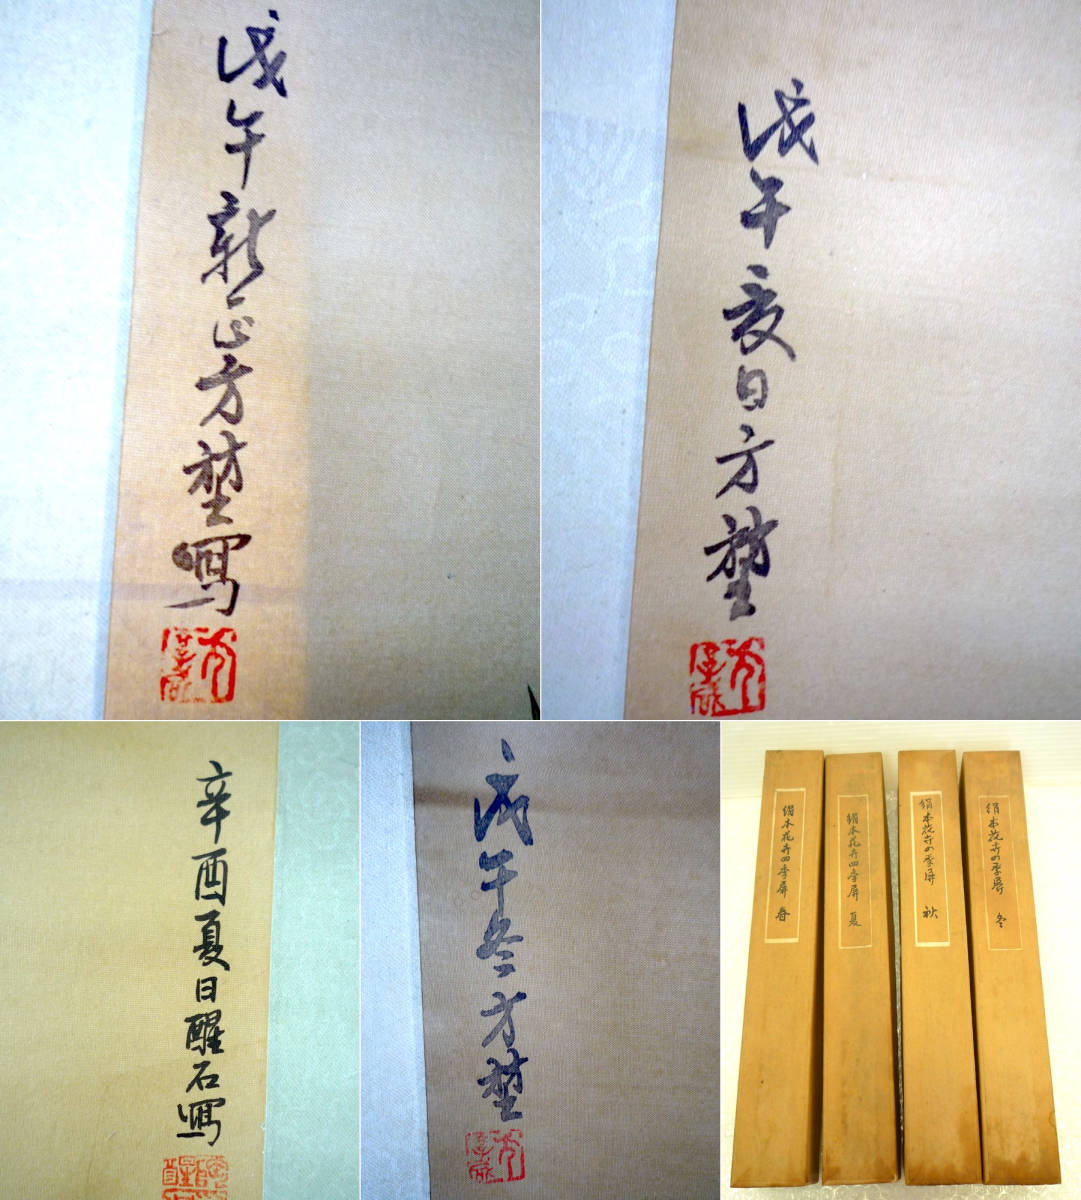 戊午新正方埜寫
戊午夏日方埜
辛酉夏日醒石寫
戊午冬方埜
絹本花卉四季屏 春
絹本花卉四季屏 夏
絹本花卉の季屏 秋
絹本花卉の季屏 冬